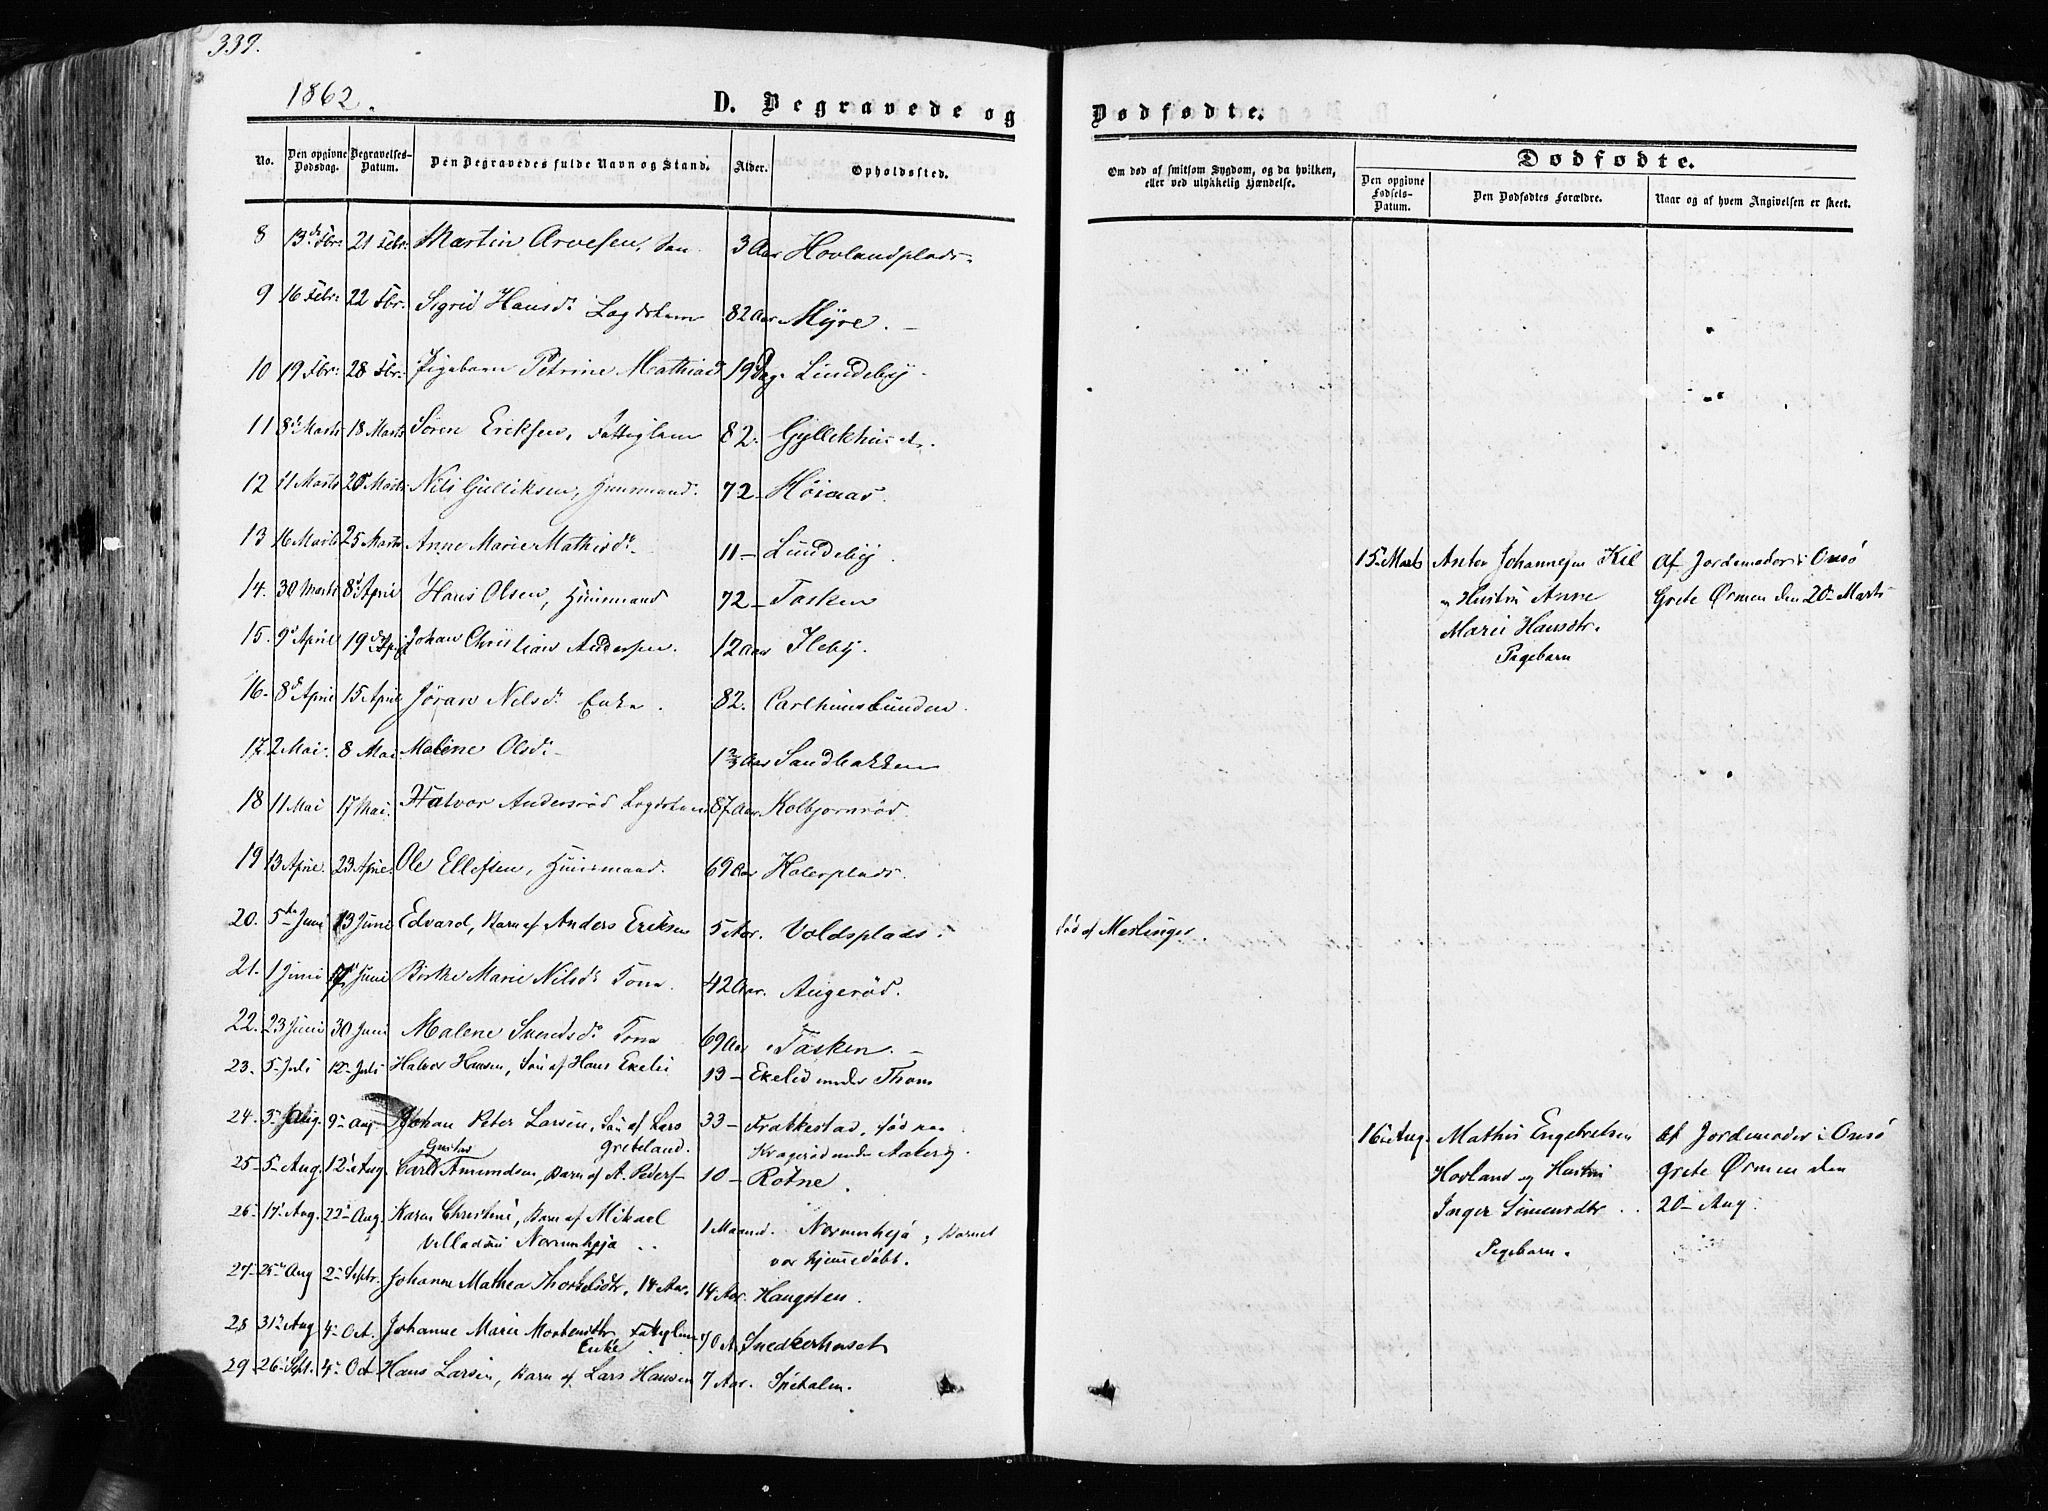 339.
1862.
D. Begravede og
Dødfødte.
No. Den opgivne Dødsdag. Begravelses-Datum. Den Begravedes fulde Navn og Stand. Alder. Opholdssted.
Om død af smitsom Sygdom, og da hvilken, eller ved ulykkelig Hændelse.
Dødfødte.
Den opgivne Fødsels-Datum. Den Dødfødtes Forældre. Naar og af hvem Angivelsen er skeet.
8 13de Fbr: 21 Febr: Martin Arvesen, 3 Aar Hovlandplads
9 16 Febr: 22 Fbr: Sigrid Hansd: Lægdslem 82 Aar Myre.
10 19 Fbr: 28 Fbr: Pigebarn Petrine Mathiasd 19 Dag. Lundeby
11 8de Marts 18 Marts Søren Eriksen, Fattiglem 82.
12 11 Marts 20 Marts Nils Gulliksen, Huusmand. 72 - Høiaas.
13 16 Marts 25 Marts Anne Marie Mathisd: 11 - Lundeby
14. 30 Marts 8d April Hans Olsen, Huusmand 72 - Tasken
15. 9d April 19de April Johan Christian Andersen. 12 Aar Ileby.
16. 8d April 15 April Jøran Nilsd: Enke. 82. Carlhuuslunden.
17 2 Mai. 8 Mai Malene Olsd: Sandbakken
18 11 Mai 17 Mai. Halvor Andersrød Lægdslem 87 Aar Kolbjornrød.
19 13 April. 23 April. Ole Ellefsen, Huusmand. 69 Aar Holerplads.
20. 5te Juni 13 Juni Edvard, Barn af Anders Eriksen 5 Aar. Voldsplads. død af Meslinger.
21. 1 Juni Juni Marie Nilsd: Kone. 42 Aar. Augerød.
22. 23 Juni 30 Juni Malene Kone 69 Aar Tasken.
23. 5 Juli 12 Juli Halvor Hansen, Søn af Hans Ekelie 13 - Ekelid under Thom
24. 3 Aug. 9 Aug Johan Peter Larsen, Søn af Lars Greteland. 33 - Frakkestad, død paa
Kragerød under Aakerø.
25 - 5 Aug. 12 Aug. Carl Gustav Amundsen, Barn af A. Peders 10 - Rotne.
26 17 Aug. 22 Aug. Karen Christine, Barn af Mikael 1 Maaned. Normnhøjø, Barnet
Villadsen Normnhøjø var hjemmedøbt.
27 - 25 Aug 2 Septr. Johanne Mathea 14 Aar. 14 Aar. Haugsten.
28 31 Aug 4 Oct. Johanne Marie Mortensdtr Fattiglem Enke 70 A. Snedkerhuset
29 - 26 Sept. 4 Oct Hans Larsen, Barn af Lars Hansen 7 Aar. Spetalen.
15 Marts Anton Johannesen Kil Af Jordemoder i Onsø
og Hustru Anne Grete Ørmen den 20 Marts
Marie Hansdtr.
Pigebarn
16 Aug. Mathis Engebretsen Af Jordemoder i Onsø
Hovland og Hustru Grete Ørmen den
Inger Simensdtr 20 Aug.
Pigebarn.